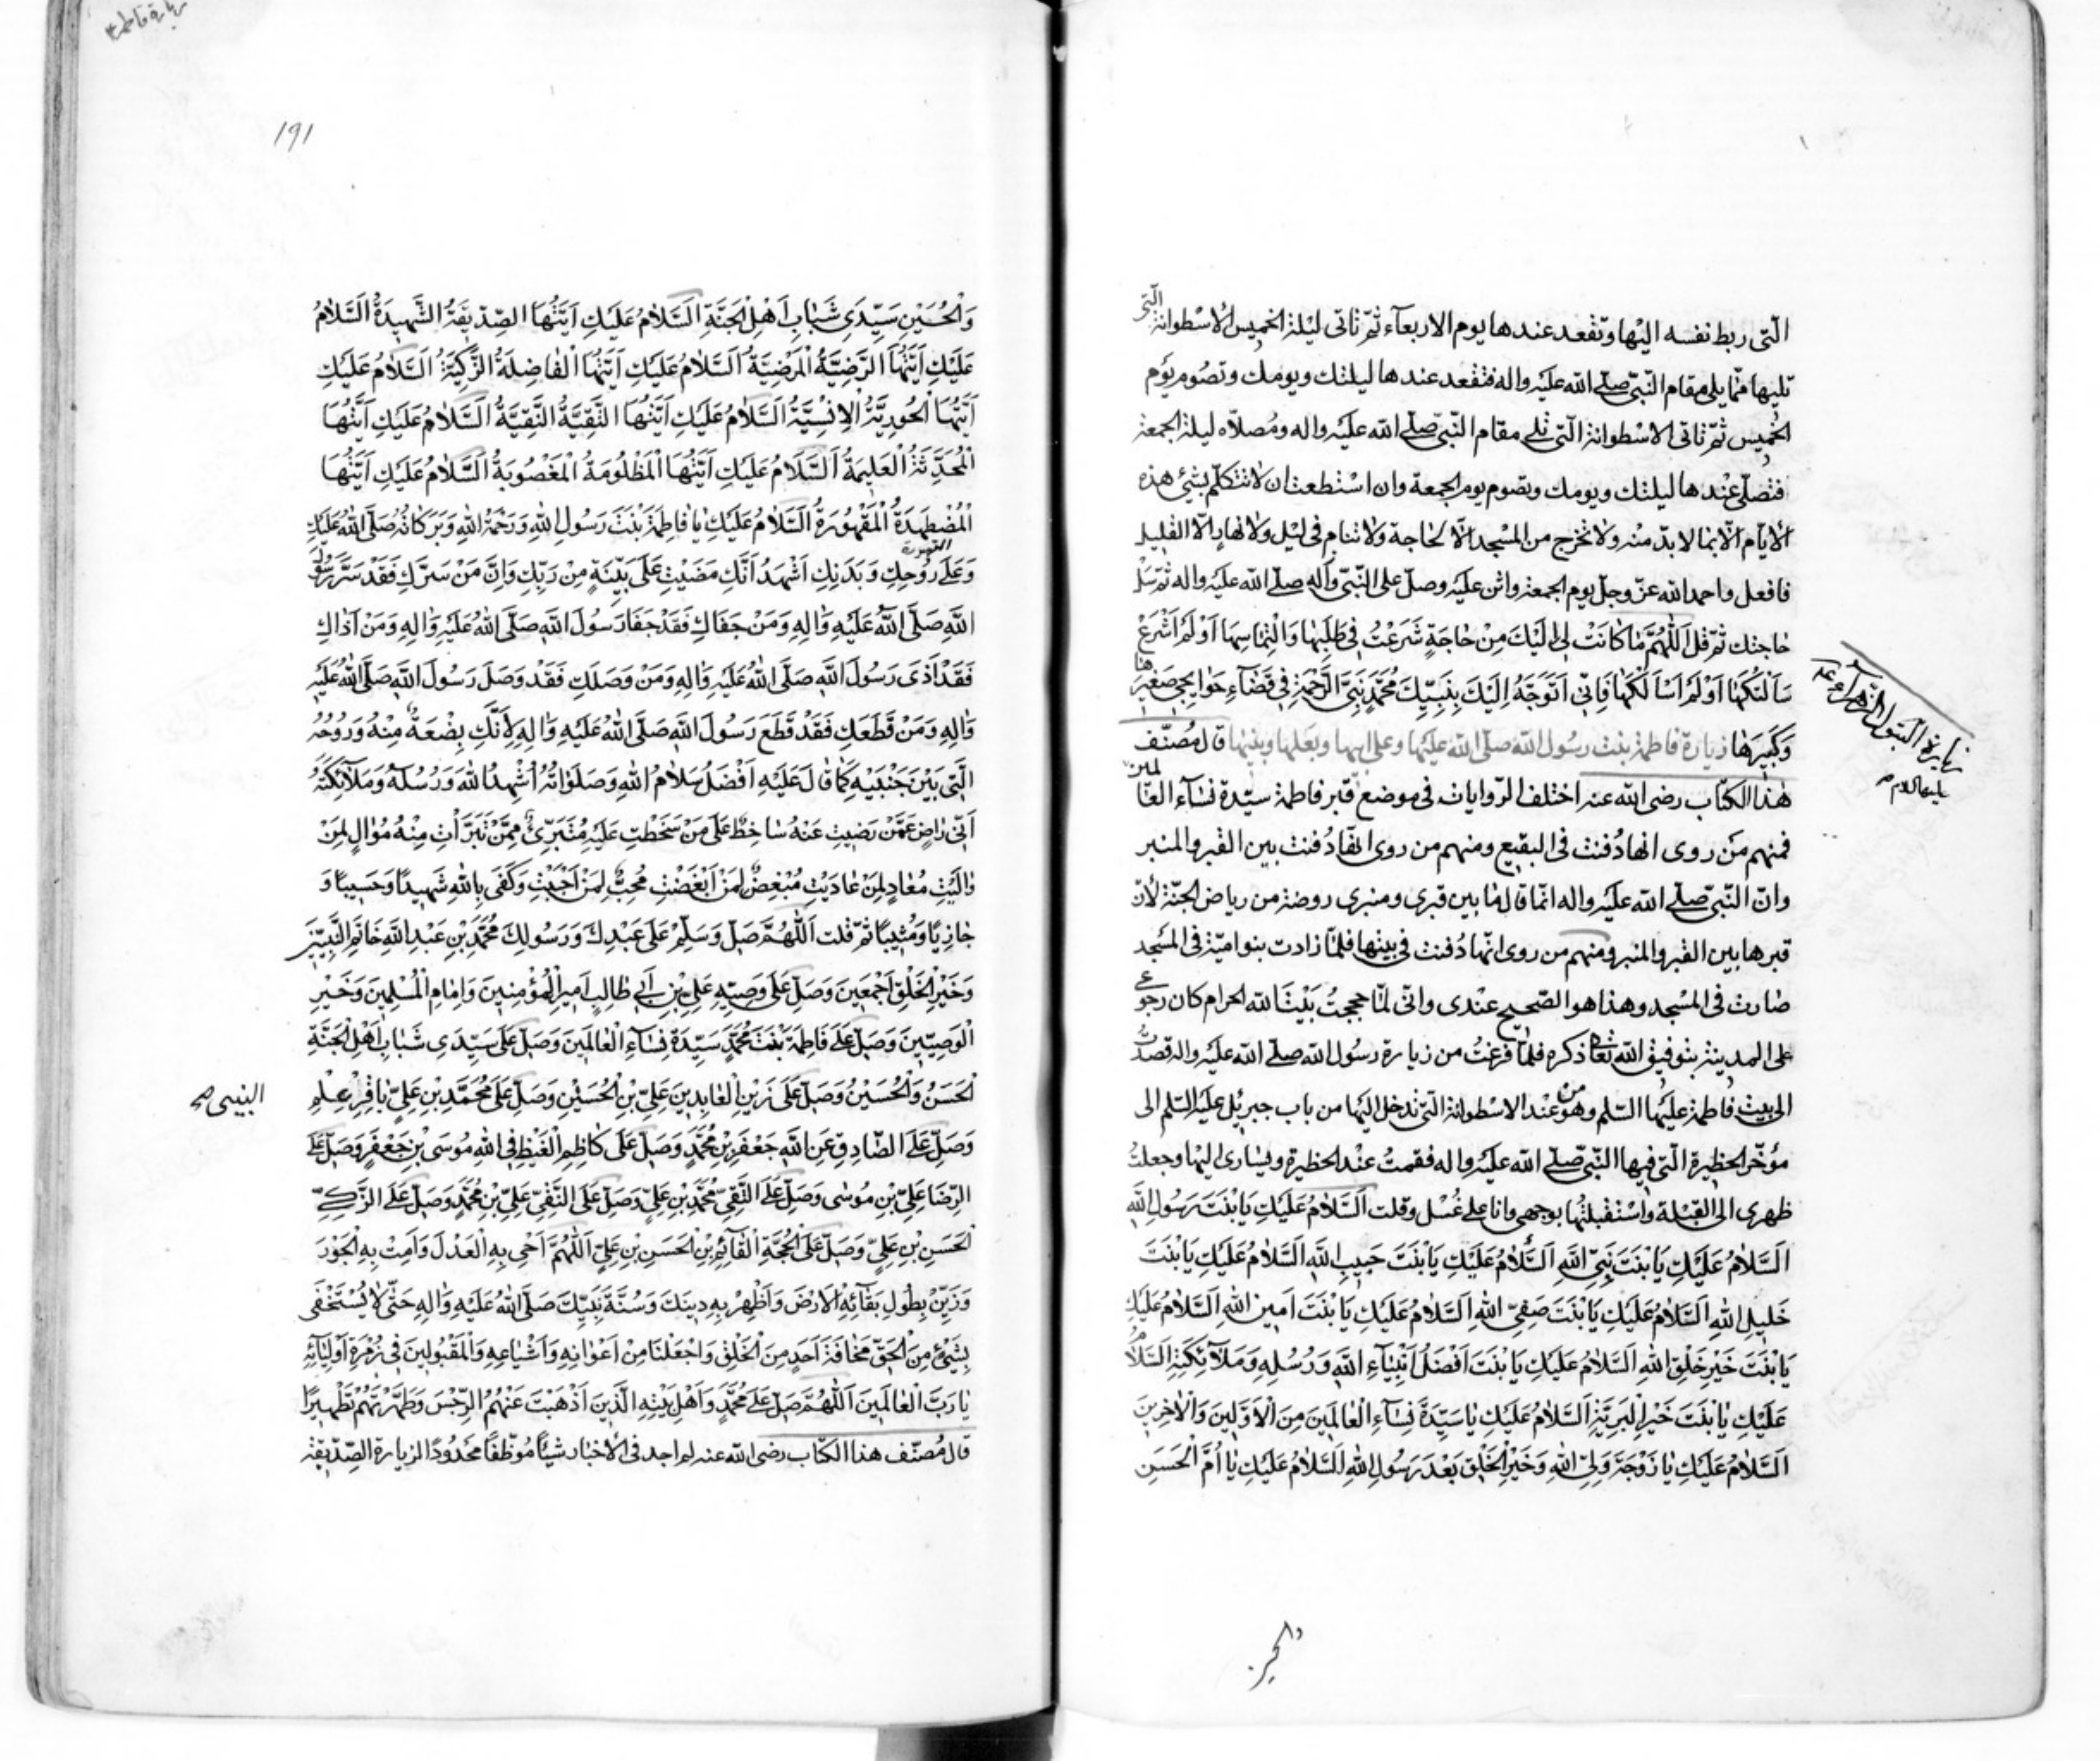 الّتى ربط نفسه اليها وتقعد عندها يوم الاربعاء ثمّ تاتى ليلة الخميس الاسطوانة الّتى
تليها ممّا يلى مقام النّبىّ صلّى الله عليه واله فتقعد عندها ليلتك ويومك وتصوم يوم
الخميس ثمّ تاتى الاسطوانة الّتى تلى مقام النّبى صلّى الله عليه واله ومصلاّه ليلة الجمعة
فتصلّى عندها ليلتك ويومك وتصوم يوم الجمعة وان استطعت ان لا تتكلّم بشئ هذه
الايّام الاّ بما لا بدّ منه ولا تخرج من المسجد الاّ لحاجة ولا تنام فى ليل ولا نهار الاّ القليل
فافعل واحمد الله عزّ وجلّ يوم الجمعة واثن عليه وصلّ على النّبىّ واله صلّى الله عليه واله ثمّ سل
حاجتك ثمّ قل اَللّهُمَّ ما كانَتْ لى اِلَيْكَ مِنْ حاجَةٍ شَرَعْتُ فى طَلَبِها وَالْتِماسِها اَوْ لَمْ اَشْرَعْ
سَاَلْتُكَها اَوْ لَمْ اَسْاَلْكَها فَاِنّى اَتَوَجَّهُ اِلَيْكَ بِنَبِيِّكَ مُحَمَّدٍ نَبِىِّ الرَّحْمَةِ فى قَضاءِ حَوائِجى صَغيرِها
وَكَبيرِها زيارة فاطمة بنت رسول الله صلّى الله عليها وعلى ابيها وبعلها وبنيها قال مُصنّف
هذا الكتاب رضى الله عنه اختلف الرّوايات فى موضع قبر فاطمة سيّدة نساء العالمين
فمنهم من روى انها دُفنت فى البقيع ومنهم من روى انّها دُفنت بين القبر والمنبر
وانّ النّبى صلّى الله عليه واله انّما قال ما بين قبرى ومنبرى روضة من رياض الجنّة لأنّ
قبرها بين القبر والمنبر ومنهم من روى انّها دُفنت فى بيتها فلمّا زادت بنو اميّة فى المسجد
صارت فى المسجد وهذا هو الصّحيح عندى وانّى لمّا حججتُ بَيْتَ الله الحرام كان رجوعى
على المدينة بتوفيق الله تعالى ذكره فلمّا فرغتُ من زيارة رسول الله صلّى الله عليه واله قصدتُ
الى بيت فاطمة عليها السّلم وهو من عند الاسطوانة التّى ندخل اليها من باب جبرئيل عليه السّلم الى
مؤخّر الحظيرة الّتى فيها النّبى صلّى الله عليه واله فقمتُ عند الحظيرة ويسارى اليها وجعلتُ
ظهرى الى القبلة واستقبلتها بوجهى وانا على غُسل وقلت اَلسَّلامُ عَلَيْكِ يا بِنْتَ رَسُولِ اللهِ
اَلسَّلامُ عَلَيْكِ يا بِنْتَ نَبِىِّ اللهِ اَلسَّلامُ عَلَيْكِ يا بِنْتَ حَبيبِ اللهِ اَلسَّلامُ عَلَيْكِ يا بِنْتَ
خَليلِ اللهِ اَلسَّلامُ عَلَيْكِ يا بِنْتَ صَفِىِّ اللهِ اَلسَّلامُ عَلَيْكِ يا بِنْتَ اَمينِ اللهِ اَلسَّلامُ عَلَيْكِ
يا بِنْتَ خَيْرِ خَلْقِ اللهِ اَلسَّلامُ عَلَيْكِ يا بِنْتَ اَفْضَلِ اَنْبِياءِ اللهِ وَرُسُلِهِ وَمَلائِكَتِهِ اَلسَّلامُ
عَلَيْكِ يا بِنْتَ خَيْرِ الْبَرِيَّةِ اَلسَّلامُ عَلَيْكِ يا سَيِّدَةَ نِساءِ الْعالَمينَ مِنَ الْاَوَّلينَ وَالْاخِرينَ
اَلسَّلامُ عَلَيْكِ يا زَوْجَةَ وَلِىِّ اللهِ وَخَيْرِ الْخَلْقِ بَعْدَ رَسُولِ اللهِ اَلسَّلامُ عَلَيْكِ يا اُمَّ الْحَسَنِ
والحسين
زيارة البتول الزهراء
عليها السلام
زيارة فاطمة ع
191
وَالْحُسَيْنِ سَيِّدَىْ شَبابِ اَهْلِ الْجَنَّةِ اَلسَّلامُ عَلَيْكِ اَيَّتُهَا الصِّدّيقَةُ الشَّهيدَةُ اَلسَّلامُ
عَلَيْكِ اَيَّتُهَا الرَّضِيَّةُ الْمَرْضِيَّةُ اَلسَّلامُ عَلَيْكِ اَيَّتُهَا الْفاضِلَةُ الزَّكِيَّةُ اَلسَّلامُ عَلَيْكِ
اَيَّتُهَا الْحُورِيَّةُ الْاِنْسِيَّةُ اَلسَّلامُ عَلَيْكِ اَيَّتُهَا التَّقِيَّةُ النَّقِيَّةُ اَلسَّلامُ عَلَيْكِ اَيَّتُهَا
الْمُحَدَّثَةُ الْعَليمَةُ اَلسَّلامُ عَلَيْكِ اَيَّتُهَا الْمَظْلُومَةُ الْمَغْصُوبَةُ اَلسَّلامُ عَلَيْكِ اَيَّتُهَا
الْمُضْطَهَدَةُ الْمَقْهُورَةُ اَلسَّلامُ عَلَيْكِ يا فاطِمَةُ بِنْتَ رَسُولِ اللهِ وَرَحْمَةُ اللهِ وَبَرَكاتُهُ صَلَّى اللهُ عَلَيْكِ
وَعَلى رُوحِكِ وَبَدَنِكِ اَشْهَدُ اَنَّكِ مَضَيْتِ عَلى بَيِّنَةٍ مِنْ رَبِّكِ وَاَنَّ مَنْ سَرَّكِ فَقَدْ سَرَّ رَسُولَ
اللهِ صَلَّى اللهُ عَلَيْهِ وَالِهِ وَمَنْ جَفاكِ فَقَدْ جَفا رَسُولَ اللهِ صَلَّى اللهُ عَلَيْهِ وَالِهِ وَمَنْ اَذاكِ
فَقَدْ اَذى رَسُولَ اللهِ صَلَّى اللهُ عَلَيْهِ وَالِهِ وَمَنْ وَصَلَكِ فَقَدْ وَصَلَ رَسُولَ اللهِ صَلَّى اللهُ عَلَيْهِ
وَالِهِ وَمَنْ قَطَعَكِ فَقَدْ قَطَعَ رَسُولَ اللهِ صَلَّى اللهُ عَلَيْهِ وَالِهِ لِاَنَّكِ بِضْعَةٌ مِنْهُ وَرُوحُهُ
الَّتى بَيْنَ جَنْبَيْهِ كَما قالَ عَلَيْهِ اَفْضَلُ سَلامُ اللهِ وَصَلَواتُهُ اُشْهِدُ اللهَ وَرُسُلَهُ وَمَلائِكَتَهُ
اَنّى راضٍ عَمَّنْ رَضيتِ عَنْهُ ساخِطٌ عَلى مَنْ سَخَطْتِ عَلَيْهِ مُتَبَرِّئٌ مِمَّنْ تَبَرَّاْتِ مِنْهُ مُوالٍ لِمَنْ
والَيْتِ مُعادٍ لِمَنْ عادَيْتِ مُبْغِضٌ لِمَنْ اَبْغَضْتِ مُحِبٌّ لِمَنْ اَحْبَبْتِ وَكَفى بِاللهِ شَهيدًا وَحَسيبًا وَ
جازِيًا وَمُثيبًا ثمّ قلت اَللّهُمَّ صَلِّ وَسَلِّمْ عَلى عَبْدِكَ وَرَسُولِكَ مُحَمَّدِ بْنِ عَبْدِ اللهِ خاتَمِ النَّبِيّينَ
وَخَيْرِ الْخَلْقِ اَجْمَعينَ وَصَلِّ عَلى وَصِيِّهِ عَلِىِّ بْنِ اَبى طالِبٍ اَميرِ الْمُؤْمِنينَ وَاِمامِ الْمُسْلِمينَ وَخَيْرِ
الْوَصِيّينَ وَصَلِّ عَلى فاطِمَةَ بِنْتِ مُحَمَّدٍ سَيِّدَةِ نِساءِ الْعالَمينَ وَصَلِّ عَلى سَيِّدَىْ شَبابِ اَهْلِ الْجَنَّةِ
الْحَسَنِ وَالْحُسَيْنِ وَصَلِّ عَلى زَيْنِ الْعابِدينَ عَلِىِّ بْنِ الْحُسَيْنِ وَصَلِّ عَلى مُحَمَّدِ بْنِ عَلِىٍّ باقِرِ عِلْمِ
النبيين صح
وَصَلِّ عَلَى الصّادِقِ عَنِ اللهِ جَعْفَرِ بْنِ مُحَمَّدٍ وَصَلِّ عَلى كاظِمِ الْغَيْظِ فِى اللهِ مُوسَى بْنِ جَعْفَرٍ وَصَلِّ عَلَى
الرِّضا عَلِىِّ بْنِ مُوسى وَصَلِّ عَلَى التَّقِىِّ مُحَمَّدِ بْنِ عَلِىٍّ وَصَلِّ عَلَى النَّقِىِّ عَلِىِّ بْنِ مُحَمَّدٍ وَصَلِّ عَلَى الزَّكِىِّ
الْحَسَنِ بْنِ عَلِىٍّ وَصَلِّ عَلَى الْحُجَّةِ الْقائِمِ بْنِ الْحَسَنِ بْنِ عَلِىٍّ اَللّهُمَّ اَحْىِ بِهِ الْعَدْلَ وَاَمِتْ بِهِ الْجَوْرَ
وَزَيِّنْ بِطُولِ بَقائِهِ الْاَرْضَ وَاَظْهِرْ بِهِ دينَكَ وَسُنَّةَ نَبِيِّكَ صَلَّى اللهُ عَلَيْهِ وَالِهِ حَتّى لا يُسْتَخْفى
بِشَىْءٍ مِنَ الْحَقِّ مَخافَةَ اَحَدٍ مِنَ الْخَلْقِ وَاجْعَلْنا مِنْ اَعْوانِهِ وَاَشْياعِهِ وَالْمَقْبُولينَ فى زُمْرَةِ اَوْلِيائِهِ
يا رَبَّ الْعالَمينَ اَللّهُمَّ صَلِّ عَلى مُحَمَّدٍ وَاَهْلِ بَيْتِهِ الَّذينَ اَذْهَبْتَ عَنْهُمُ الرِّجْسَ وَطَهَّرْتَهُمْ تَطْهيرًا
قال مُصنّف هذا الكتاب رضى الله عنه لم اجد فى الأخبار شيئًا مُوَظّفًا محدُودًا لزيارة الصّدّيقة